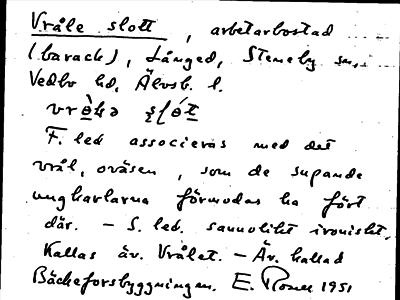 Vråle slott, arbetarbostad
(barack), Långed, Steneby sn,
Vedbo hd, Älvsb. l.
F. led associeras med det
vrål, oväsen, som de supande
ungkarlarna förmodas ha fört
där. – S. led. sannolikt ironiskt.
Kallas äv. Vrålet. – Äv. kallad
Bäckeforsbyggningen. E. 1951